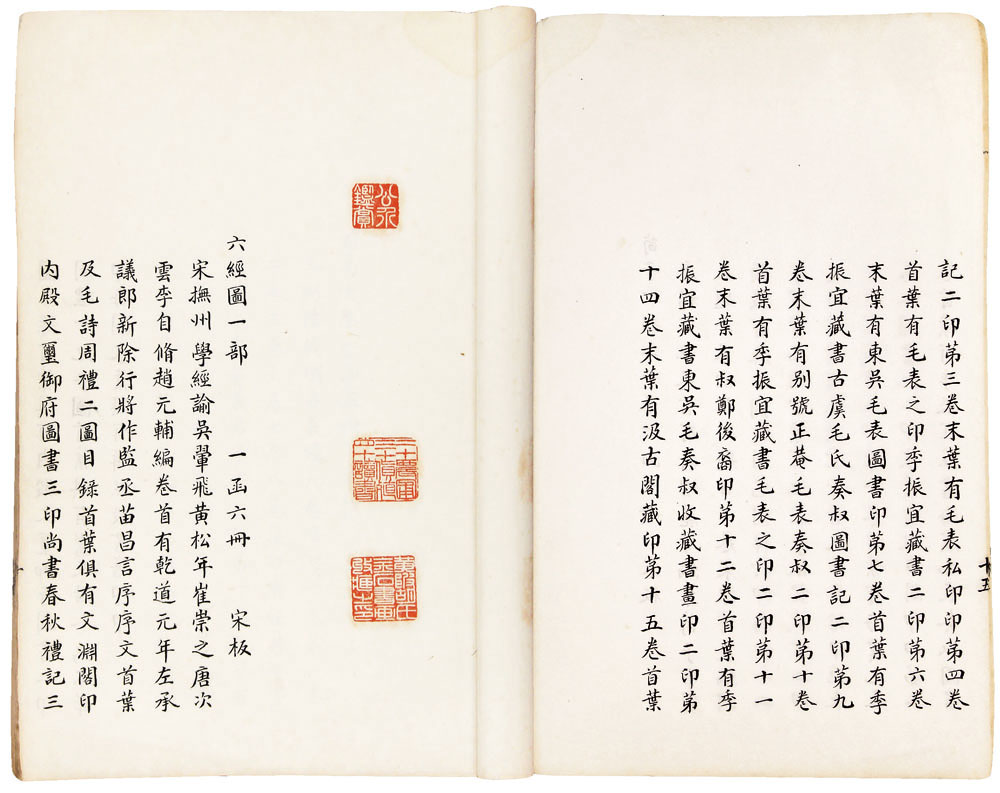 記二印第三卷末葉有毛表私印印第四卷
首葉有毛表之印季振宜藏書二印第六卷
末葉有東吳毛表圖書印第七卷首葉有季
振宜藏書古虞毛氏奏叔圖書記二印第九
卷末葉有别號正菴毛表奏叔二印第十卷
首葉有季振宜藏書毛表之印二印第十一
卷末葉有叔鄭後裔印第十二卷首葉有季
振宜藏書東吳毛奏叔收藏書畫印二印第
十四卷末葉有汲古閣藏印第十五卷首葉
十五
六經圖一部 一函六冊 宋板
宋撫州學經諭吳翬飛黃松年崔崇之唐次
雲李自脩趙元輔編卷首有乾道元年左承
議郎新除行將作監丞苗昌言序序文首葉
及毛詩周禮二圖目録首葉俱有文淵閣印
内殿文璽御府圖書三印尚書春秋禮記三